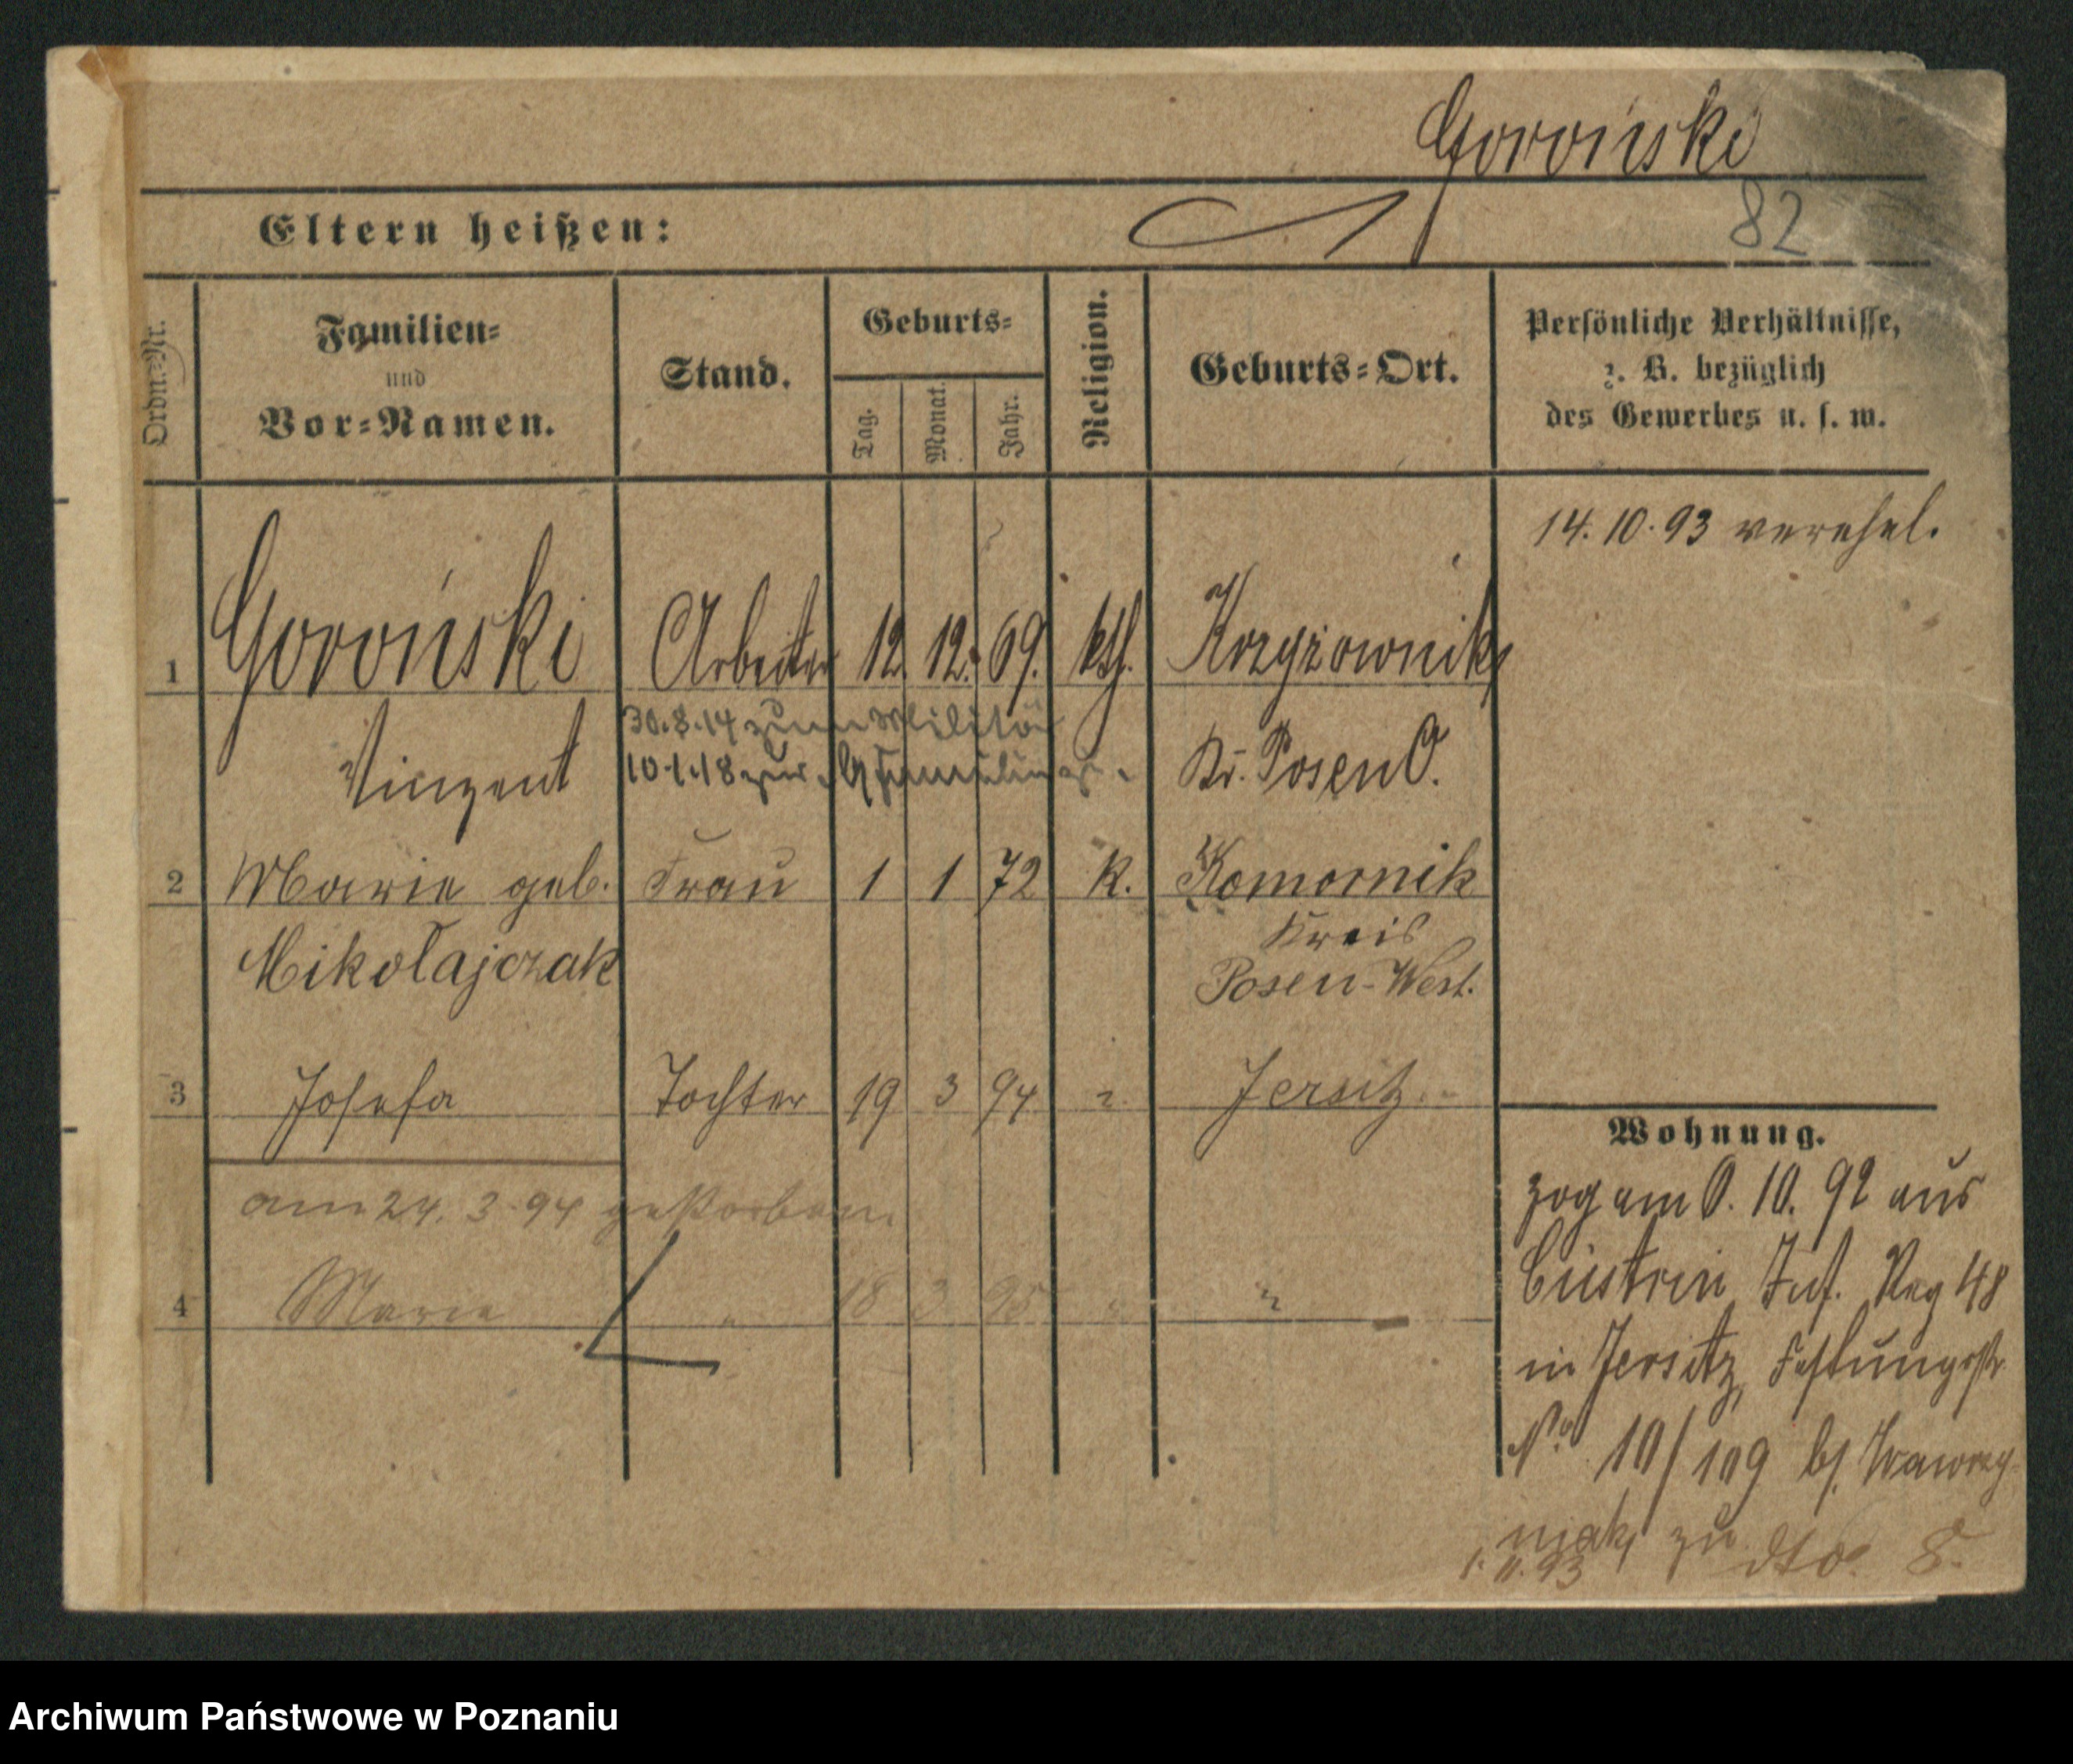 Goroński
82
Eltern heißen:
Ordn.-Nr.
Familien-
und
Vor-Namen.
Stand.
Geburts-
Tag.
Monat.
Jahr.
Religion.
Geburts-Ort.
Persönliche Verhältnisse,
z. B. bezüglich
des Gewerbes u. s. w.
14. 10. 93 verehel.
1 Goroński Arbeiter 12. 12. 69. kth.
Vinzent
30.8.14 zum Militär
10.1.18 zur
Kr. Posen O.
2 Marie geb. Frau 1 1 72 k. Komornik
Mikołajczak
Kreis
Posen-West.
3 Josefa Tochter 19 3 94 " Jersitz
am 24. 3. 94 gestorben
4 Marie " 18 3 95 " "
Wohnung.
zog am 10. 92 aus
Cüstrin Inf. Reg 48
in Jersitz, Festungsstr.
No 10/109 bf. Wawrzy-
niak zu dto. 8.
1. 11. 93
Archiwum Państwowe w Poznaniu